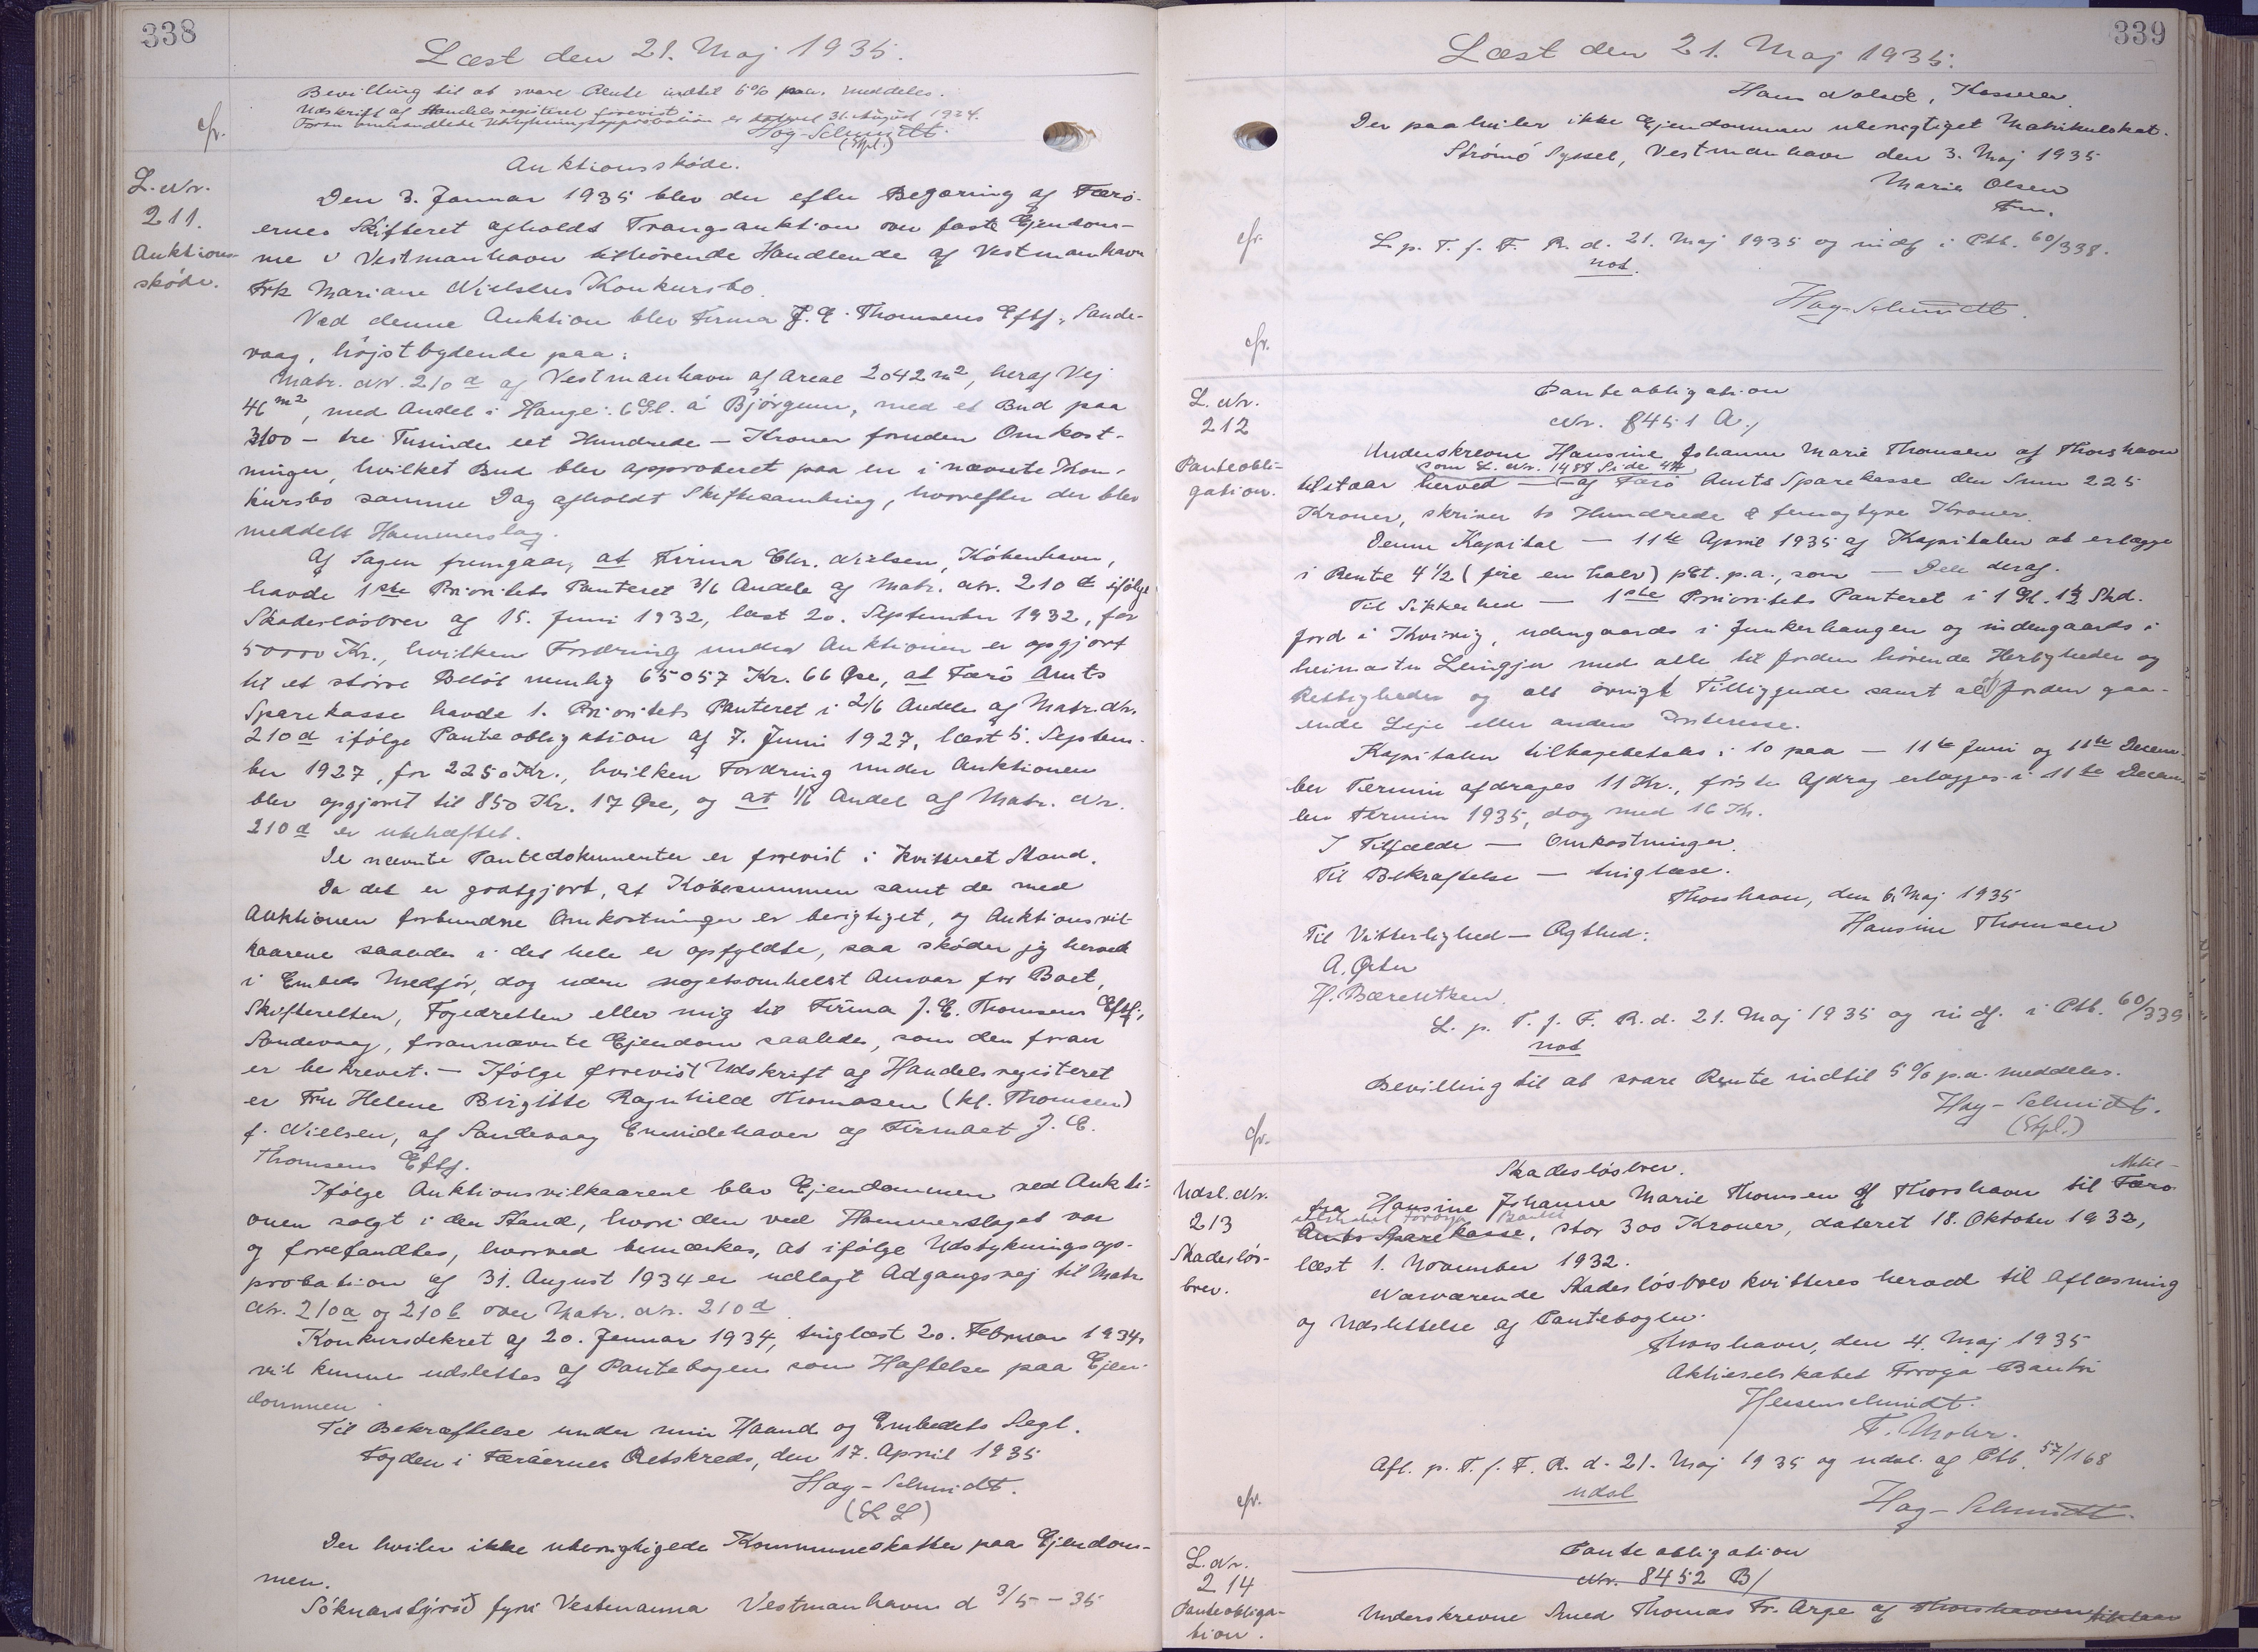 338
Læst den 21. Maj 1935.
Bevilling til at svare Rente indtil 6% p.a. meddeles.
Udskrift af Handelsregisteret forevist.
Foran omhandlede Udstykningsapprobation er dateret 31. August 1934.
Hag-Schmidt.
(Stpl.)
cfr.
Auktionsskøde.
L. Nr.
211.
Auktions-
skøde.
Den 3. Januar 1935 blev der efter Begæring af Færø-
ernes Skifteret afholdt Tvangsauktion over faste Ejendom-
me i Vestmanhavn tilhørende Handlende af Vestmanhavn
Frk Mariane Nielsens Konkursbo.
Ved denne Auktion blev Firma J. E. Thomsens Eftf., Sande-
vaag, højstbydende paa:
Matr. Nr. 210 d af Vestmanhavn af Areal 2042 m2, heraf Vej
46 m2, med Andel i Hauge: 6 Gl. á Bjørgum, med et Bud paa
3100 — tre Tusinde eet Hundrede — Kroner foruden Omkost-
ninger, hvilket Bud blev approberet paa en i nævnte Kon-
kursbo samme Dag afholdt Skiftesamling, hvorefter der blev
meddelt Hammerslag.
Af Sagen fremgaar, at Firma Chr. Nielsen, København,
havde 1ste Prioritets Panteret 3/6 Andele af Matr. Nr. 210 d ifølge
Skadesløsbrev af 15. Juni 1932, læst 20. September 1932, for
50000 Kr., hvilken Fordring under Auktionen er opgjort
til et større Beløb nemlig 65057 Kr. 66 Øre, at Færø Amts
Sparekasse havde 1. Prioritets Panteret i 2/6 Andele af Matr. Nr.
210 d ifølge Panteobligation af 7. Juni 1927, læst 5. Septem-
ber 1927, for 2250 Kr., hvilken Fordring under Auktionen
blev opgjort til 850 Kr. 17 Øre, og at 1/6 Andel af Matr. Nr.
210 d er ubehæftet.
De nævnte Pantedokumenter er forevist i kvitteret Stand.
Da det er godtgjort, at Købesummen samt de med
Auktionen forbundne Omkostninger er berigtiget, og Auktionsvil-
kaarene saaledes i det hele er opfyldte, saa skøder jeg herved
i Embeds Medfør, dog uden nogetsomhelst Ansvar for Boet,
Skifteretten, Fogedretten eller mig til Firma J. E. Thomsens Eftf.,
Sandevaag, forannævnte Ejendom saaledes, som den foran
er beskrevet. — Ifølge forevist Udskrift af Handelsregisteret
er Fru Helene Birgitte Ragnhild Thomasen (kl. Thomsen)
f. Nielsen, af Sandevaag Eneindehaver af Firmaet J. E.
Thomsens Eftf.
Ifølge Auktionsvilkaarene blev Ejendommen ved Aukti-
onen solgt i den Stand, hvori den ved Hammerslaget var
og forefandtes, hvorved bemærkes, at ifølge Udstykningsap-
probation af 31. August 1934 er udlagt Adgangsvej til Matr
Nr. 210 a og 210 b over Matr. Nr. 210 d
Konkursdekret af 20. Januar 1934, tinglæst 20. Februar 1934,
vil kunne udslettes af Pantebogen som Hæftelse paa Ejen-
dommen.
Til Bekræftelse under min Haand og Embedets Segl.
Fogden i Færøernes Retskreds, den 17. April 1935
Hag-Schmidt.
(L S)
Der hviler ikke uberigtigede Kommuneskatter paa Ejendom-
men.
Sóknarstýrið fyri Vestmanna Vestmanhavn d 3/5 - 35
339
Læst den 21. Maj 1935.
Hans Nolsöe, Kasserer.
Der paahviler ikke Ejendommen uberigtiget Matrikulskat.
Strömö Syssel, Vestmanhavn den 3. Maj 1935
Marie Olsen
Fm.
cfr.
L. p. T. f. F. R. d. 21. Maj 1935 og indf. i Ptb. 60/338.
not.
Hag-Schmidt.
cfr.
L. Nr.
212
Panteobli-
gation.
Panteobligation
Nr. 8451 A./
Underskrevne Hansine Johanne Marie Thomsen af Thorshavn
som L. Nr. 1488 Side
tilstaar herved — af Færø Amts Sparekasse den Sum 225
Kroner, skriver to Hundrede & femogtyve Kroner.
Denne Kapital — 11te April 1935 af Kapitalen at erlægge
i Rente 4½ (fire en halv) pCt. p.a., som — Dele deraf.
Til Sikkerhed — 1ste Prioritets Panteret i 1 Gl. 1½ Skd.
Jord i Kvivig, udengaards i Junkerhaugen og indengaards i
heimastu Leingju med alle til Jorden hørende Herligheder og
Rettigheder og alt øvrigt Tilliggende samt al af Jorden gaa-
ende Leje eller anden Interesse.
Kapitalen tilbagebetales i 10 paa — 11te Juni og 11te Decem-
ber Termin afdrages 11 Kr., første Afdrag erlægges i 11te Decem-
ber Termin 1935, dog med 16 Kr.
I Tilfælde — Omkostninger.
Til Bekræftelse — tinglæse.
Thorshavn, den 6. Maj 1935
Til Vitterlighed — Ægthed: Hansine Thomsen
A. Øster
H. Bærentsen.
L. p. T. f. F. R. d. 21. Maj 1935 og indf. i Ptb. 60/339
not
Bevilling til at svare Rente indtil 5% p.a. meddeles.
Hag-Schmidt.
(Stpl.)
cfr.
Udsl. Nr.
213
Skadesløs-
brev.
Skadesløsbrev.
Aktie-
fra Hansine Johanne Marie Thomsen af Thorshavn til Færø
selskabet Føroya Banki
Amts Sparekasse, stor 300 Kroner, dateret 18. Oktober 1932,
læst 1. November 1932.
Nærværende Skadesløsbrev kvitteres herved til Aflæsning
og Udslettelse af Pantebogen.
Thorshavn, den 4. Maj 1935
Aktieselskabet Føroya Banki
Hessenschmidt.
F. Mohr.
Afl. p. T. f. F. R. d. 21. Maj 1935 og udsl. af Ptb. 57/168
udsl
cfr.
Hag-Schmidt.
L. Nr.
214
Panteobliga-
tion.
Panteobligation
Nr. 8452 B/
Underskrevne Smed Thomas Fr. Arge af Thorshavn tilstaar